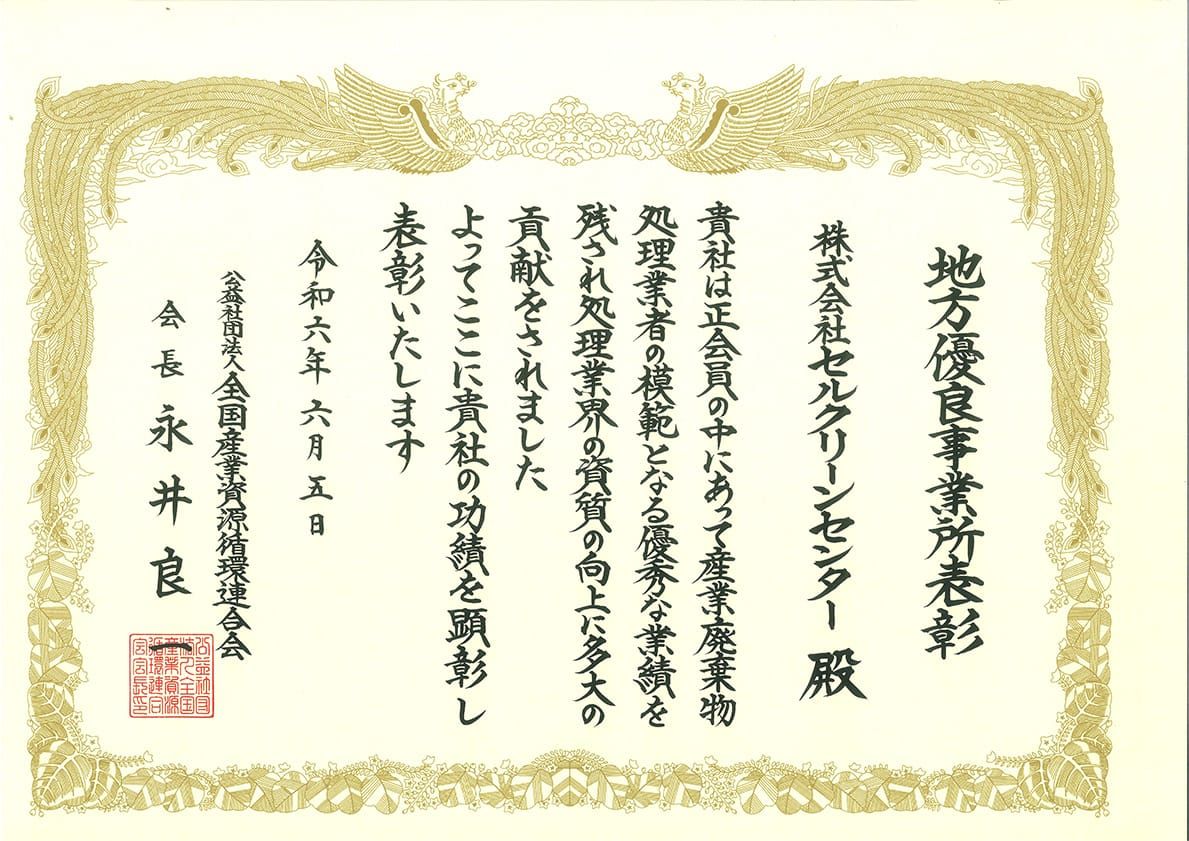 地方優良事業所表彰
株式会社セルクリーンセンター 殿
貴社は正会員の中にあって産業廃棄物
処理業者の模範となる優秀な業績を
残され処理業界の資質の向上に多大の
貢献をされました
よってここに貴社の功績を顕彰し
表彰いたします
令和六年六月五日
公益社団法人全国産業資源循環連合会
会長 永井良一
公益社団
法人全国
産業資源
循環連合
会会長印